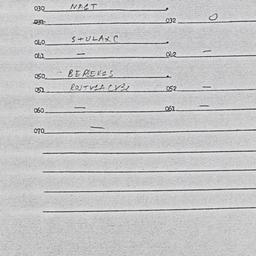 030 NAST
031 032 O
040 STULAXC
041 — 042 —
050 BEREKES
051 052 —
060 — 061 —
070 —